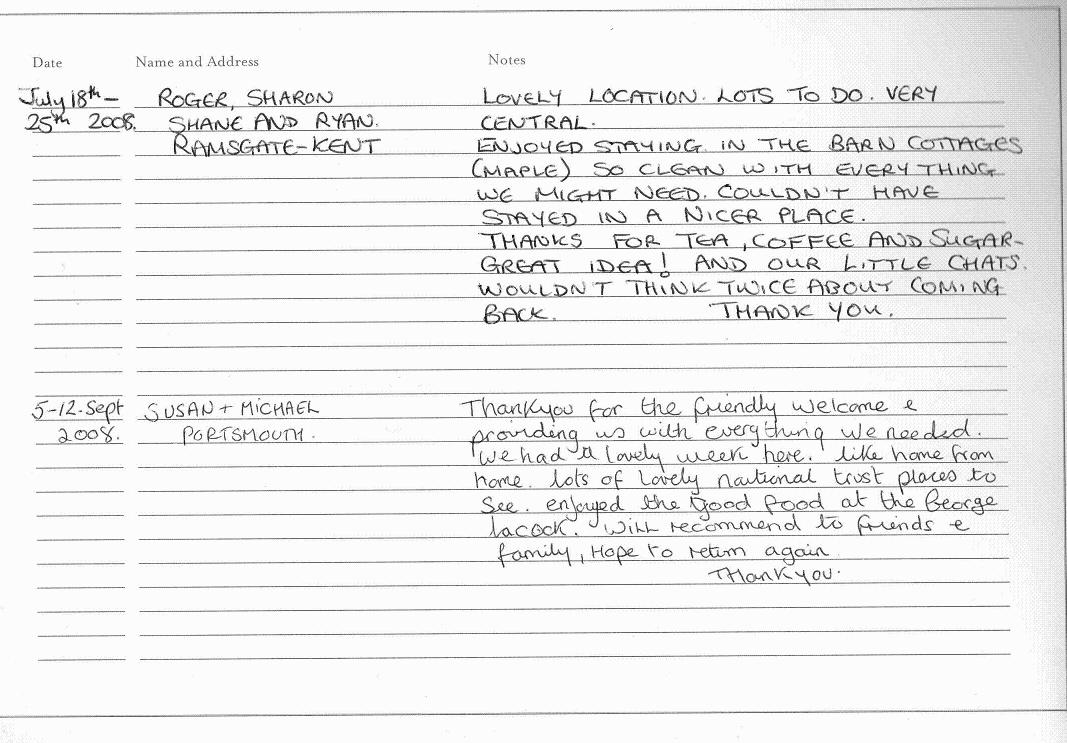 Date Name and Address Notes
July 18th - ROGER, SHARON LOVELY LOCATION. LOTS TO DO. VERY
25th 2008. SHANE AND RYAN. CENTRAL.
RAMSGATE-KENT ENJOYED STAYING IN THE BARN COTTAGES
(MAPLE) SO CLEAN WITH EVERYTHING
WE MIGHT NEED. COULDN'T HAVE
STAYED IN A NICER PLACE.
THANKS FOR TEA, COFFEE AND SUGAR-
GREAT IDEA! AND OUR LITTLE CHATS.
WOULDN'T THINK TWICE ABOUT COMING
BACK. THANK YOU.
5-12.Sept SUSAN + MICHAEL Thankyou for the friendly welcome &
2008. PORTSMOUTH. providing us with everything we needed.
We had a lovely week here. like home from
home. lots of lovely national trust places to
See. enjoyed the good food at the George
lacock. Will recommend to friends &
family, Hope to return again
Thankyou.